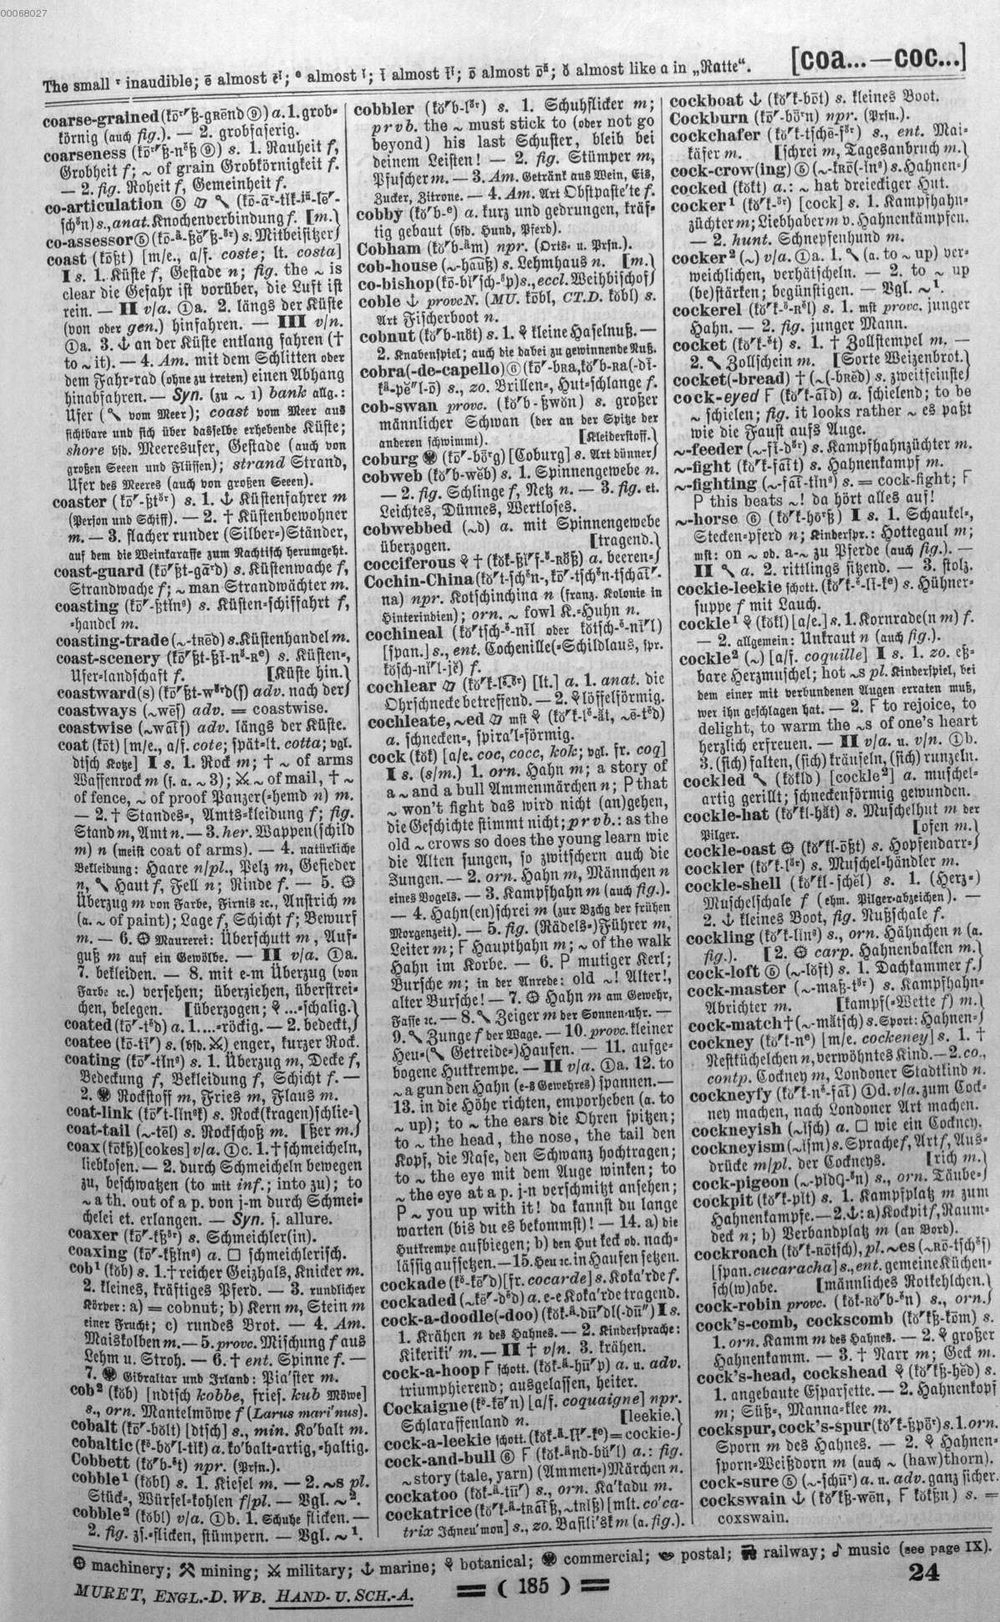 00068027
The small r inaudible; almost almost almost almost almost like a in „Ratte“.
[coa...—coc...]
coarse-grained a. 1. grob-
körnig (auch fig.). — 2. grobfaserig.
coarseness s. 1. Rauheit f,
Grobheit f; ~ of grain Grobkörnigkeit f.
— 2. fig. Roheit f, Gemeinheit f.
co-articulation
s., anat. Knochenverbindung f. [m.]
co-assessor s. Mitbeisitzer
coast [m/e., a/f. coste; lt. costa]
I s. 1. Küste f, Gestade n; fig. the ~ is
clear die Gefahr ist vorüber, die Luft ist
rein. — II v/a. ①a. 2. längs der Küste
(von oder gen.) hinfahren. — III v/n.
①a. 3. ⚓ an der Küste entlang fahren (†
to ~ it). — 4. Am. mit dem Schlitten oder
dem Fahr-rad (ohne zu treten) einen Abhang
hinabfahren. — Syn. (zu ~ 1) bank allg.:
Ufer (vom Meer); coast vom Meer aus
sichtbare und sich über dasselbe erhebende Küste;
shore bsd. Meeresufer, Gestade (auch von
großen Seeen und Flüssen); strand Strand,
Ufer des Meeres (auch von großen Seeen).
coaster s. 1. ⚓ Küstenfahrer m
(Person und Schiff). — 2. † Küstenbewohner
m. — 3. flacher runder (Silber-)Ständer,
auf dem die Weinkaraffe zum Nachtisch herumgeht.
coast-guard s. Küstenwache f,
Strandwache f; ~ man Strandwächter m.
coasting s. Küsten-schiffahrt f,
-handel m.
coasting-trade s. Küstenhandel m.
coast-scenery s. Küsten-,
Ufer-landschaft f. [Küste hin.]
coastward(s) adv. nach der
coastways adv. = coastwise.
coastwise adv. längs der Küste.
coat [m/e., a/f. cote; spät-lt. cotta; vgl.
dtsch Kotze] I s. 1. Rock m; † ~ of arms
Waffenrock m (s. a. ~ 3); ~ of mail, † ~
of fence, ~ of proof Panzer(-hemd n) m.
— 2. † Standes-, Amts-kleidung f; fig.
Stand m, Amt n. — 3. her. Wappen(schild
m) n (meist coat of arms). — 4. natürliche
Bekleidung: Haare n/pl., Pelz m, Gefieder
n, Haut f, Fell n; Rinde f. — 5.
Überzug m von Farbe, Firnis ɪc., Anstrich m
(a. ~ of paint); Lage f, Schicht f; Bewurf
m. — 6. Maurerei: Überschutt m, Auf-
guß m auf ein Gewölbe. — II v/a. ①a.
7. bekleiden. — 8. mit e-m Überzug (von
Farbe ɪc.) versehen; überziehen, überstrei-
chen, belegen. [überzogen; ...-schalig.]
coated a. 1. ...-röckig. — 2. bedeckt,
coatee s. (bsd. ⚔) enger, kurzer Rock.
coating s. 1. Überzug m, Decke f,
Bedeckung f, Bekleidung f, Schicht f. —
2. Rockstoff m, Fries m, Flaus m.
coat-link s. Rock(kragen)schlie-
coat-tail s. Rockschoß m. [ßer m.]
coax [cokes] v/a. ①c. 1. † schmeicheln,
liebkosen. — 2. durch Schmeicheln bewegen
zu, beschwatzen (to mit inf.; into zu); to
~ a th. out of a p. von j-m durch Schmei-
chelei et. erlangen. — Syn. s. allure.
coaxer s. Schmeichler(in).
coaxing a. □ schmeichlerisch.
cob¹ s. 1. † reicher Geizhals, Knicker m.
2. kleines, kräftiges Pferd. — 3. rundlicher
Körper: a) = cobnut; b) Kern m, Stein m
einer Frucht; c) rundes Brot. — 4. Am.
Maiskolben m. — 5. provc. Mischung f aus
Lehm u. Stroh. — 6. † ent. Spinne f. —
7. Gibraltar und Irland: Pia'ster m.
cob² [ndtsch kobbe, fries. kub Möwe]
s., orn. Mantelmöwe f (Larus mari'nus).
cobalt [dtsch] s., min. Ko'balt m.
cobaltic a. ko'balt-artig, -haltig.
Cobbett npr. (Prsn.).
cobble¹ s. 1. Kiesel m. — 2. ~s pl.
Stück-, Würfel-kohlen f/pl. — Vgl. ~².
cobble² v/a. ①b. 1. Schuhe flicken. —
2. fig. zs.-flicken, stümpern. — Vgl. ~¹.
cobbler s. 1. Schuhflicker m;
prvb. the ~ must stick to (oder not go
beyond) his last Schuster, bleib bei
deinem Leisten! — 2. fig. Stümper m,
Pfuscher m. — 3. Am. Getränk aus Wein, Eis,
Zucker, Zitrone. — 4. Am. Art Obstpaste'te f.
cobby a. kurz und gedrungen, kräf-
tig gebaut (bsd. Hund, Pferd).
Cobham npr. (Orts- u. Prsn.).
cob-house s. Lehmhaus n. [m.]
co-bishop s., eccl. Weihbischof
coble ⚓ provcN. (MU. CT.D.) s.
Art Fischerboot n.
cobnut s. 1. kleine Haselnuß. —
2. Knabenspiel; auch die dabei zu gewinnende Nuß.
cobra(-de-capello)
s., zo. Brillen-, Hut-schlange f.
cob-swan provc. s. großer
männlicher Schwan (der an der Spitze der
anderen schwimmt). [Kleiderstoff.]
coburg [Coburg] s. Art dünner
cobweb s. 1. Spinnengewebe n.
— 2. fig. Schlinge f, Netz n. — 3. fig. et.
Leichtes, Dünnes, Wertloses.
cobwebbed a. mit Spinnengewebe
überzogen. [tragend.]
cocciferous † a. beeren-
Cochin-China
npr. Kotschinchina n (franz. Kolonie in
Hinterindien); orn. ~ fowl K.-Huhn n.
cochineal oder
[span.] s., ent. Cochenille(-Schildlaus, spr.
f.
cochlear [lt.] a. 1. anat. die
Ohrschnecke betreffend. — 2. löffelförmig.
cochleate, ~ed mst
a. schnecken-, spira'l-förmig.
cock [a/e. coc, cocc, kok; vgl. fr. coq]
I s. (s/m.) 1. orn. Hahn m; a story of
a ~ and a bull Ammenmärchen n; P that
~ won't fight das wird nicht (an)gehen,
die Geschichte stimmt nicht; prvb.: as the
old ~ crows so does the young learn wie
die Alten sungen, so zwitschern auch die
Jungen. — 2. orn. Hahn m, Männchen n
eines Vogels. — 3. Kampfhahn m (auch fig.).
— 4. Hahn(en)schrei m (zur Bzchg der frühen
Morgenzeit). — 5. fig. (Rädels-)Führer m,
Leiter m; F Haupthahn m; ~ of the walk
Hahn im Korbe. — 6. P mutiger Kerl;
Bursche m; in der Anrede: old ~! Alter!,
alter Bursche! — 7. Hahn m am Gewehr,
Fasse ɪc. — 8. Zeiger m der Sonnen-uhr. —
9. Zunge f der Wage. — 10. provc. kleiner
Heu-(Getreide-)Haufen. — 11. aufge-
bogene Hutkrempe. — II v/a. ①a. 12. to
~ a gun den Hahn (e-s Gewehres) spannen. —
13. in die Höhe richten, emporheben (a. to
~ up); to ~ the ears die Ohren spitzen;
to ~ the head, the nose, the tail den
Kopf, die Nase, den Schwanz hochtragen;
to ~ the eye mit dem Auge winken; to
~ the eye at a p. j-n verschmitzt ansehen;
P ~ you up with it! da kannst du lange
warten (bis du es bekommst)! — 14. a) die
Hutkrempe aufbiegen; b) den Hut keck ob. nach-
lässig aufsetzen. — 15. Heu ɪc. in Haufen setzen.
cockade [fr. cocarde] s. Koka'rde f.
cockaded a. e-e Koka'rde tragend.
cock-a-doodle(-doo) I s.
1. Krähen n des Hahnes. — 2. Kindersprache:
Kikeriki' m. — II † v/n. 3. krähen.
cock-a-hoop F schott. a. u. adv.
triumphierend; ausgelassen, heiter.
Cockaigne [a/f. coquaigne] npr.
Schlaraffenland n. [leekie.]
cock-a-leekie schott. = cockie-
cock-and-bull F a.: fig.
~ story (tale, yarn) (Ammen-)Märchen n.
cockatoo s., orn. Ka'kadu m.
cockatrice [mlt. co'ca-
trix Ichneu'mon] s., zo. Basili'sk m (a. fig.).
cockboat ⚓ s. kleines Boot.
Cockburn npr. (Prsn.).
cockchafer s., ent. Mai-
käfer m. [schrei m, Tagesanbruch m.]
cock-crow(ing) s. Hahnen-
cocked a.: ~ hat dreieckiger Hut.
cocker¹ [cock] s. 1. Kampfhahn-
züchter m; Liebhaber m v. Hahnenkämpfen.
— 2. hunt. Schnepfenhund m.
cocker² (~) v/a. ①a. 1. (a. to ~ up) ver-
weichlichen, verhätscheln. — 2. to ~ up
(be)stärken; begünstigen. — Vgl. ~¹.
cockerel s. 1. mst provc. junger
Hahn. — 2. fig. junger Mann.
cocket s. 1. † Zollstempel m. —
2. Zollschein m. [Sorte Weizenbrot.]
cocket(-bread) † s. zweitfeinste
cock-eyed F a. schielend; to be
~ schielen; fig. it looks rather ~ es paßt
wie die Faust aufs Auge.
~-feeder s. Kampfhahnzüchter m.
~-fight s. Hahnenkampf m.
~-fighting s. = cock-fight; F
P this beats ~! da hört alles auf!
~-horse I s. 1. Schaukel-,
Stecken-pferd n; Kinderspr.: Hottegaul m;
mst: on ~ ob. a-~ zu Pferde (auch fig.). —
II a. 2. rittlings sitzend. — 3. stolz.
cockie-leekie schott. s. Hühner-
suppe f mit Lauch.
cockle¹ [a/e.] s. 1. Kornrade(n m) f.
— 2. allgemein: Unkraut n (auch fig.).
cockle² (~) [a/f. coquille] I s. 1. zo. eß-
bare Herzmuschel; hot ~s pl. Kinderspiel, bei
dem einer mit verbundenen Augen erraten muß,
wer ihn geschlagen hat. — 2. F to rejoice, to
delight, to warm the ~s of one's heart
herzlich erfreuen. — II v/a. u. v/n. ①b.
3. (sich) falten, (sich) kräuseln, (sich) runzeln.
cockled [cockle²] a. muschel-
artig gerillt; schneckenförmig gewunden.
cockle-hat s. Muschelhut m der
Pilger. [ofen m.]
cockle-oast s. Hopfendarr-
cockler s. Muschel-händler m.
cockle-shell s. 1. (Herz-)
Muschelschale f (ehm. Pilger-abzeichen). —
2. ⚓ kleines Boot, fig. Nußschale f.
cockling s., orn. Hähnchen n (a.
fig.). [2. carp. Hahnenbalken m.]
cock-loft s. 1. Dachkammer f.
cock-master s. Kampfhahn-
Abrichter m. [kampf(-Wette f) m.]
cock-match † s. Sport: Hahnen-
cockney [m/e. cockeney] s. 1. †
Nestküchelchen n, verwöhntes Kind. — 2. co.,
contp. Cockney m, Londoner Stadtkind n.
cockneyfy ①d. v/a. zum Cock-
ney machen, nach Londoner Art machen.
cockneyish a. □ wie ein Cockney.
cockneyism s. Sprache f, Art f, Aus-
drücke m/pl. der Cockneys. [rich m.]
cock-pigeon s., orn. Täube-
cockpit s. 1. Kampfplatz m zum
Hahnenkampfe. — 2. ⚓: a) Kockpit f, Raum-
deck n; b) Verbandplatz m (an Bord).
cockroach pl. ~es
[span. cucaracha] s., ent. gemeine Küchen-
sch(w)abe. [männliches Rotkehlchen.]
cock-robin provc. s., orn.
cock's-comb, cockscomb s.
1. orn. Kamm m des Hahnes. — 2. großer
Hahnenkamm. — 3. † Narr m; Geck m.
cock's-head, cockshead s.
1. angebaute Esparsette. — 2. Hahnenkopf
m; Süß-, Manna-klee m.
cockspur, cock's-spur s. 1. orn.
Sporn m des Hahnes. — 2. Hahnen-
sporn-Weißdorn m (auch ~ (haw)thorn).
cock-sure a. u. adv. ganz sicher.
cockswain ⚓ s. =
coxswain.
machinery; mining; military; marine; botanical; commercial; postal; railway; music (see page IX).
MURET, ENGL.-D. WB. HAND- U. SCH.-A.
= ( 185 ) =
24